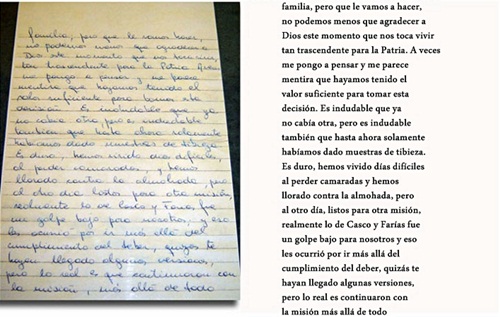 familia, pero que le vamos hacer,
no podemos menos que agradecer a
Dios este momento que nos toca vivir
tan trascendente para la Patria. A veces
me pongo a pensar y me parece
mentira que hayamos tenido el
valor suficiente para tomar esta
decisión. Es indudable que ya
no cabía otra, pero es indudable
también que hasta ahora solamente
habíamos dado muestras de tibieza.
Es duro, hemos vivido días difíciles,
al perder camaradas, y hemos
llorado contra la almohada, pero
al otro día listos para otra misión,
realmente lo de Casco y Farías, fue
un golpe bajo para nosotros, y eso
les ocurrió por ir más allá del
cumplimiento del deber, quizas te
hayan llegado algunas versiones,
pero lo real es que continuaron con
la misión, más allá de todo
familia, pero que le vamos a hacer,
no podemos menos que agradecer a
Dios este momento que nos toca vivir
tan trascendente para la Patria. A veces
me pongo a pensar y me parece
mentira que hayamos tenido el
valor suficiente para tomar esta
decisión. Es indudable que ya
no cabía otra, pero es indudable
también que hasta ahora solamente
habíamos dado muestras de tibieza.
Es duro, hemos vivido días difíciles
al perder camaradas y hemos
llorado contra la almohada, pero
al otro día, listos para otra misión,
realmente lo de Casco y Farías fue
un golpe bajo para nosotros y eso
les ocurrió por ir más allá del
cumplimiento del deber, quizás te
hayan llegado algunas versiones,
pero lo real es continuaron con
la misión más allá de todo